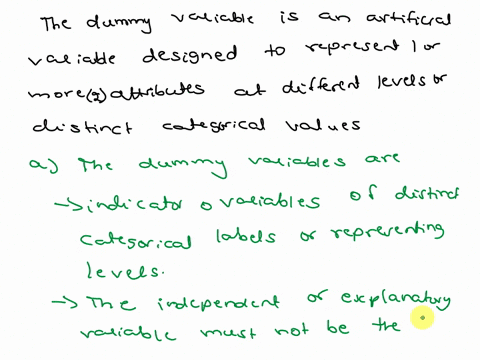 The dummy variable is an artificial
variable designed to represent 1 or
more(2) attributes at different levels or
distinct categorical values
a) The dummy variables are
→ indicator o variables of distinct
categorical labels or representing
levels.
→ The independent or explanatory
variable must not be the